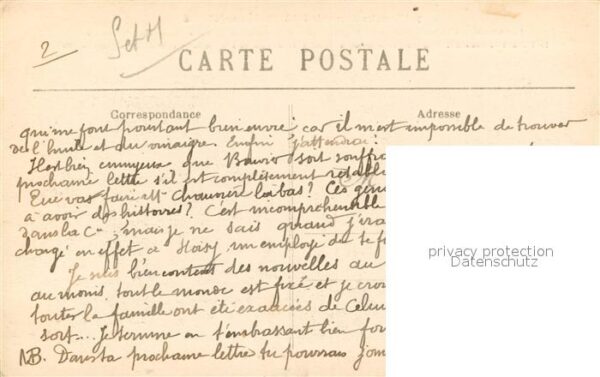 2
Set H
CARTE POSTALE
Correspondance
Adresse
qui me font pourtant bien envie, car il m'est impossible de trouver
de l'huile et du vinaigre. Enfin j'attendrai.
Il est bien ennuyeux que soit
prochaine lettre s'il est complètement
Que va faire Mr là bas? Ces
à avoir des histoires? C'est incompréhensible
dans la Cie, mais je ne sais quand j'irai
chargé en effet à un employé de te
Je suis bien content des nouvelles au
au moins tout le monde est fixé et je
toute la famille ont été de
sort... Je termine en t'embrassant bien
NB. Dans ta prochaine lettre tu pourrais
privacy protection
Datenschutz